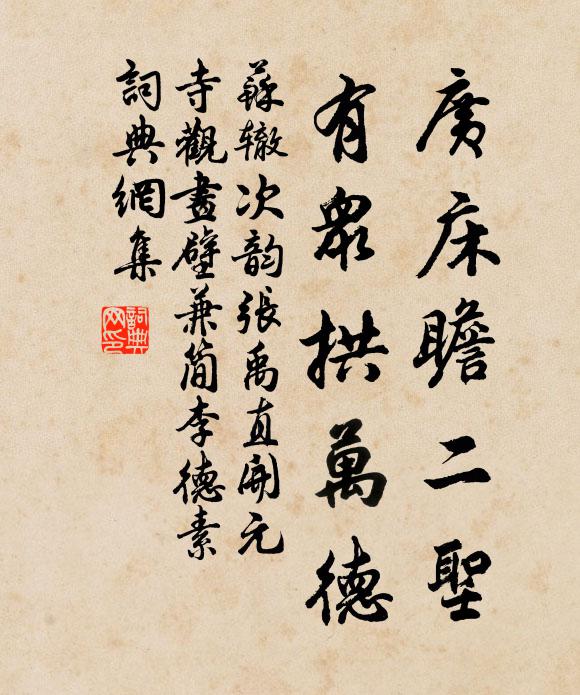 廣床瞻二聖
有衆拱萬德
蘇轍次韵張禹直開元
寺觀畫壁兼簡李德素
詞典網集
詞典网印